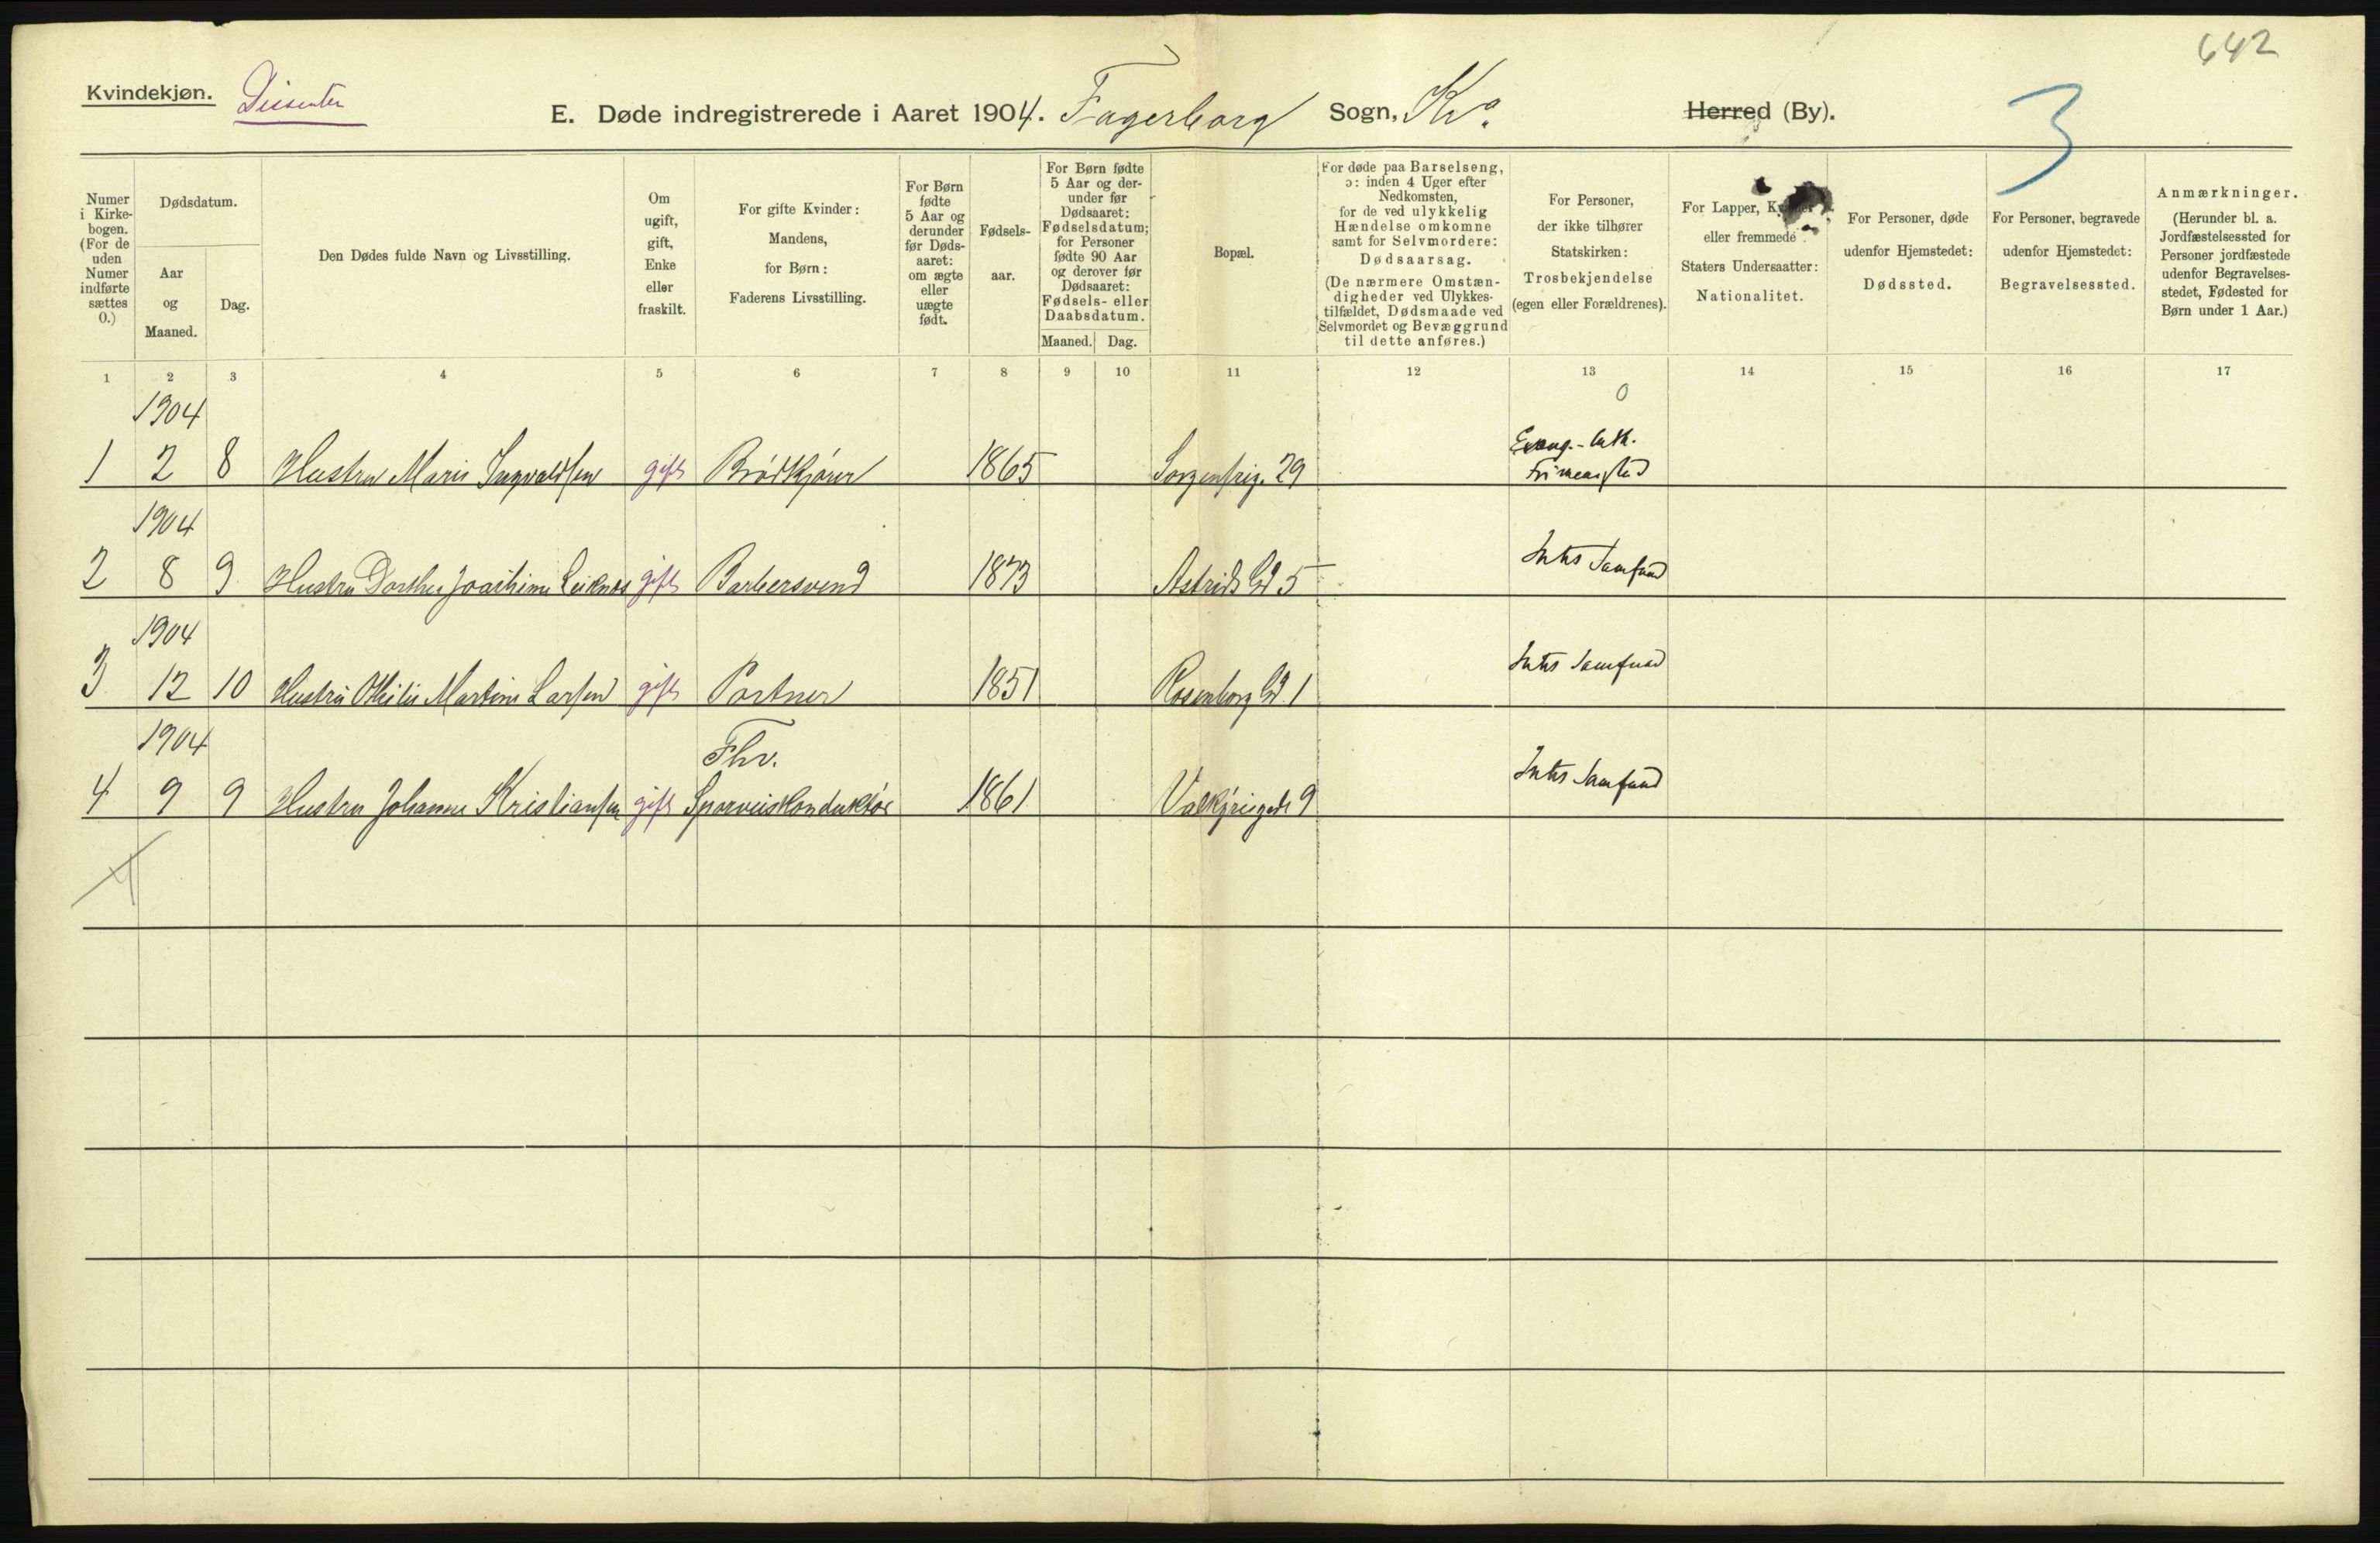 642
Kvindekjøn. Dissenter
E. Døde indregistrerede i Aaret 1904. Fagerborg Sogn, Kra. Herred (By).
3
Numer i Kirkebogen. (For de uden Numer indførte sættes 0.)
Dødsdatum.
Aar og Maaned.
Dag.
Den Dødes fulde Navn og Livsstilling.
Om ugift, gift, Enke eller fraskilt.
For gifte Kvinder: Mandens, for Børn: Faderens Livsstilling.
For Børn fødte 5 Aar og derunder før Dødsaaret: om ægte eller uægte født.
Fødselsaar.
For Børn fødte 5 Aar og derunder før Dødsaaret: Fødselsdatum; for Personer fødte 90 Aar og derover før Dødsaaret: Fødsels- eller Daabsdatum.
Maaned. Dag.
Bopæl.
For døde paa Barselseng, ɔ: inden 4 Uger efter Nedkomsten, for de ved ulykkelig Hændelse omkomne samt for Selvmordere: Dødsaarsag. (De nærmere Omstændigheder ved Ulykkestilfældet, Dødsmaade ved Selvmordet og Bevæggrund til dette anføres.)
For Personer, der ikke tilhører Statskirken: Trosbekjendelse (egen eller Forældrenes).
For Lapper, Kvæner eller fremmede Staters Undersaatter: Nationalitet.
For Personer, døde udenfor Hjemstedet: Dødssted.
For Personer, begravede udenfor Hjemstedet: Begravelsessted.
Anmærkninger. (Herunder bl. a. Jordfæstelsessted for Personer jordfæstede udenfor Begravelsesstedet, Fødested for Børn under 1 Aar.)
1 2 3 4 5 6 7 8 9 10 11 12 13 14 15 16 17
0
1904
Evang.-luth.
1 2 8 Hustru Marie Ingvaldsen gift Brødkjører 1865 Sorgenfrig. 29 Frimenighed
1904
2 8 9 Hustru Dorthea Joachime Leiknes gift Barbersvend 1873 Astrids Gd 5 Intet Samfund
1904
3 12 10 Hustru Othilie Martine Larsen gift Portner 1851 Rosenborg Gd. 1 Intet Samfund
1904 Fhv.
4 9 9 Hustru Johanne Kristiansen gift Sporveiskonduktør 1861 Valkyriegade 9 Intet Samfund
4